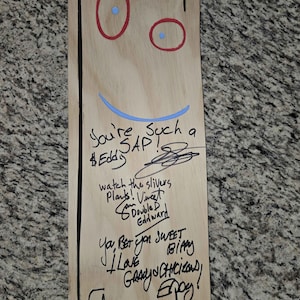 You're such a
SAP!
$ Eddy
watch the slivers
Plank!
Double D
Eddward
You Bet your SWEET
Bippy
I LOVE
GRAVY & CHICKENS!
Enjoy!